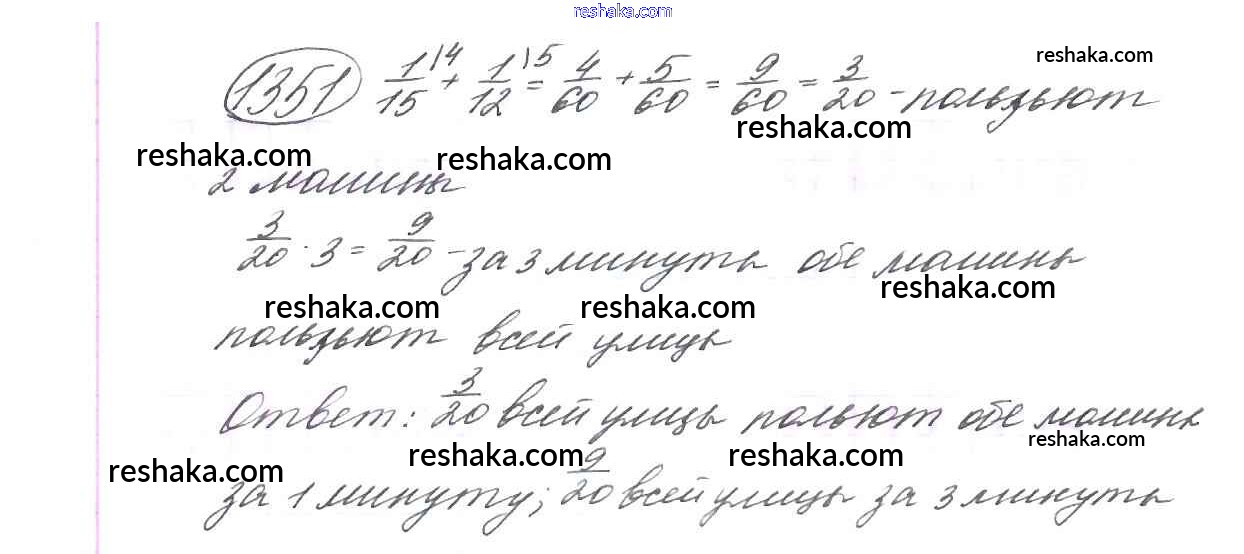 reshaka.com
reshaka.com
1351 1/15 |4 + 1/12 |5 = 4/60 + 5/60 = 9/60 = 3/20 - пользьют
reshaka.com
reshaka.com reshaka.com
2 машины
3/20 · 3 = 9/20 - за 3 минуты обе машины
reshaka.com reshaka.com reshaka.com
пользьют всей улицы
Ответ: 3/20 всей улицы польют обе машины
reshaka.com reshaka.com reshaka.com reshaka.com
за 1 минуту; 9/20 всей улицы за 3 минуты